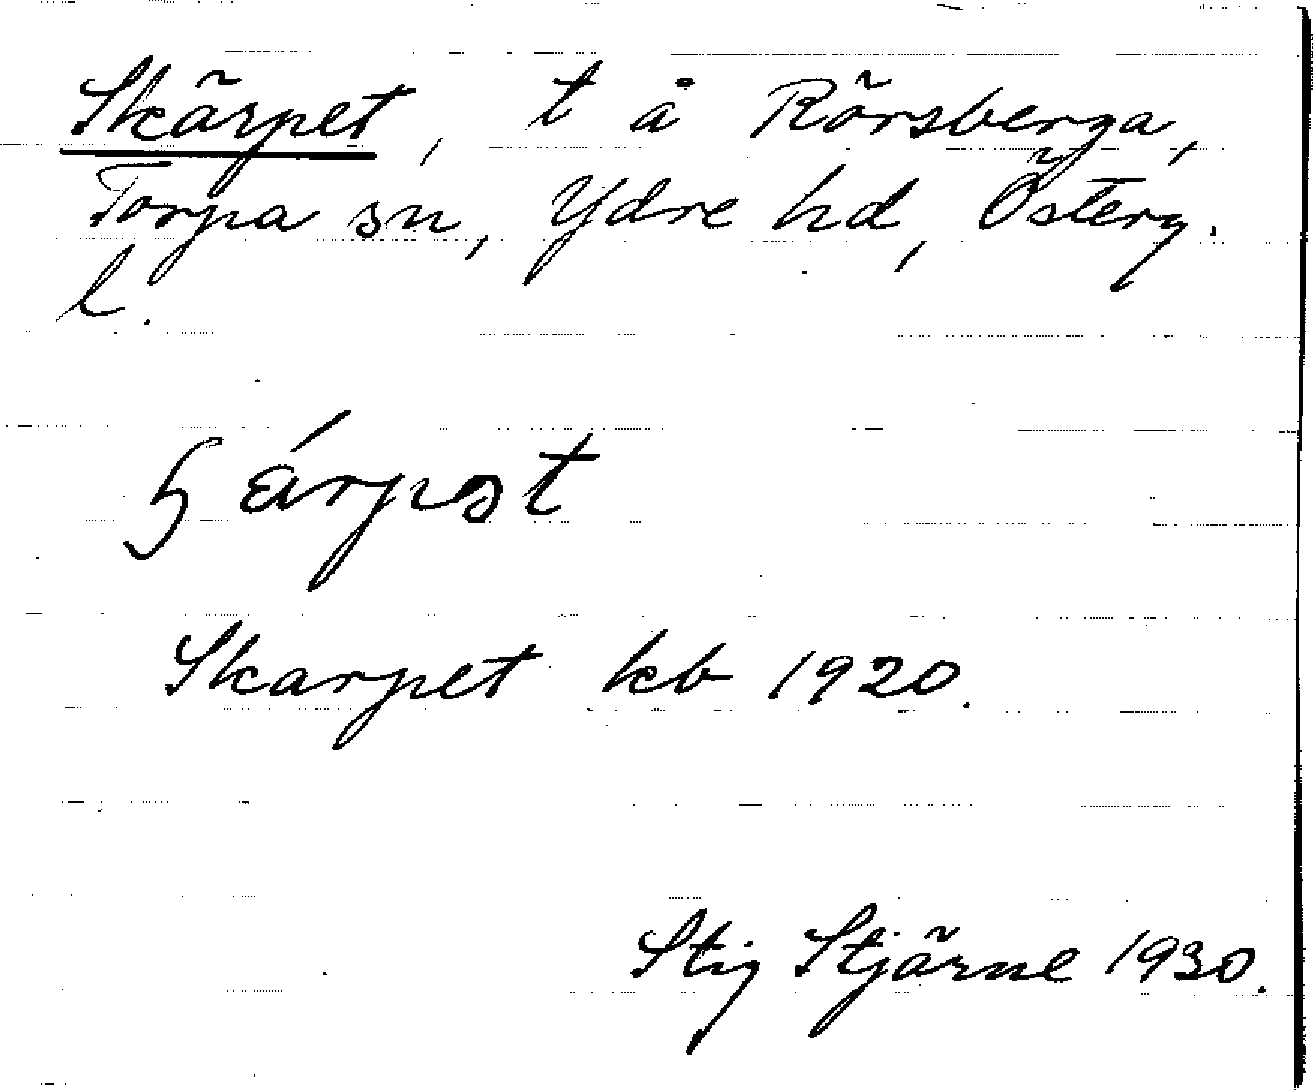 Skärpet, t å Rörsberga,
Torpa sn, Ydre hd, Österg.
l.
ʃárpət
Skarpet kb 1920.
Stig Stjärne 1930.